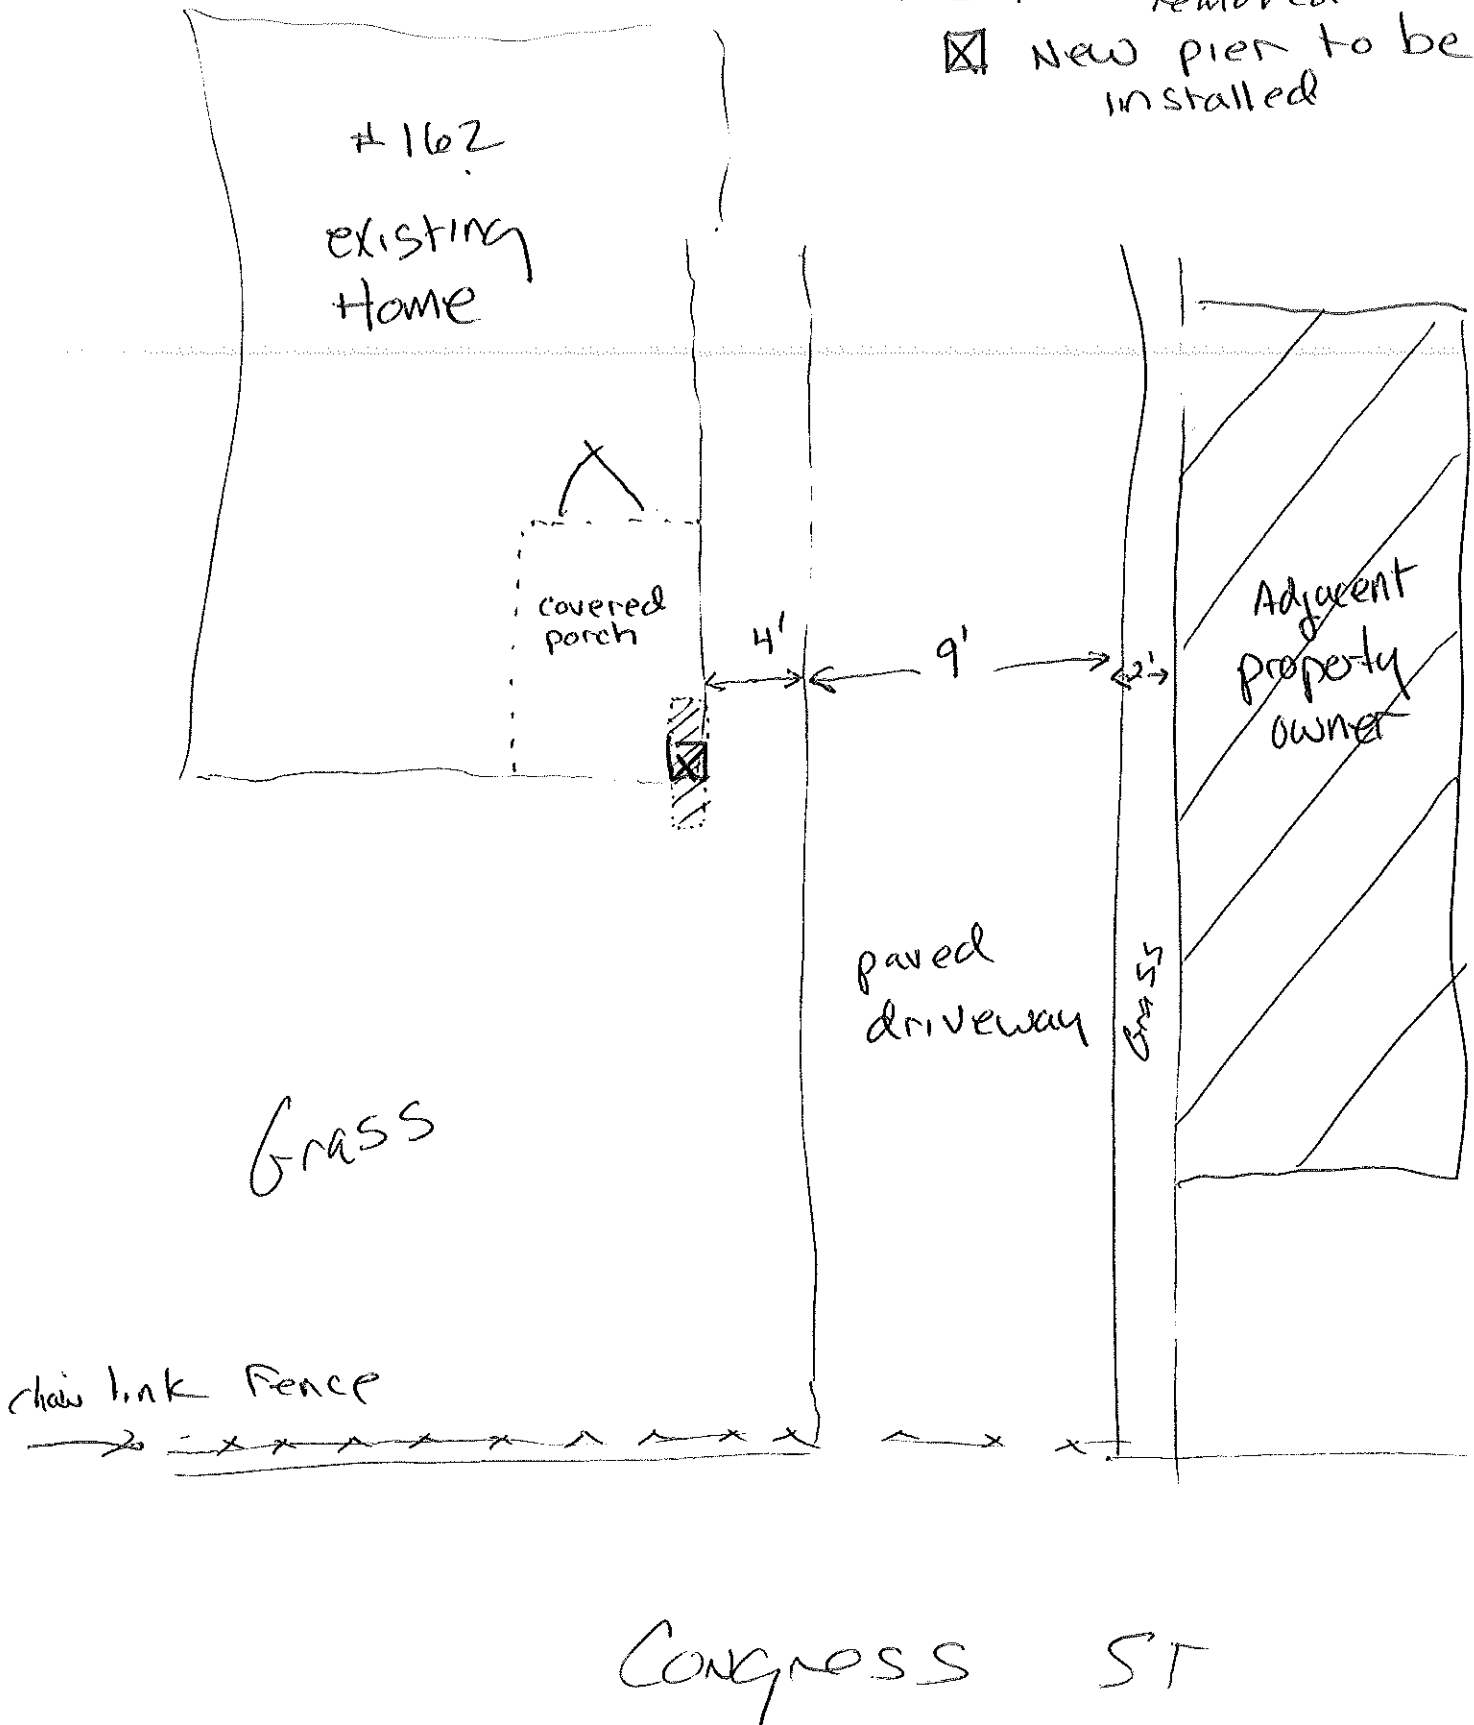 removed
New pier to be
installed
#162
existing
Home
covered
porch
4'
9'
2'
Adjacent
property
owner
paved
driveway
Grass
Grass
chain link Fence
Congress ST